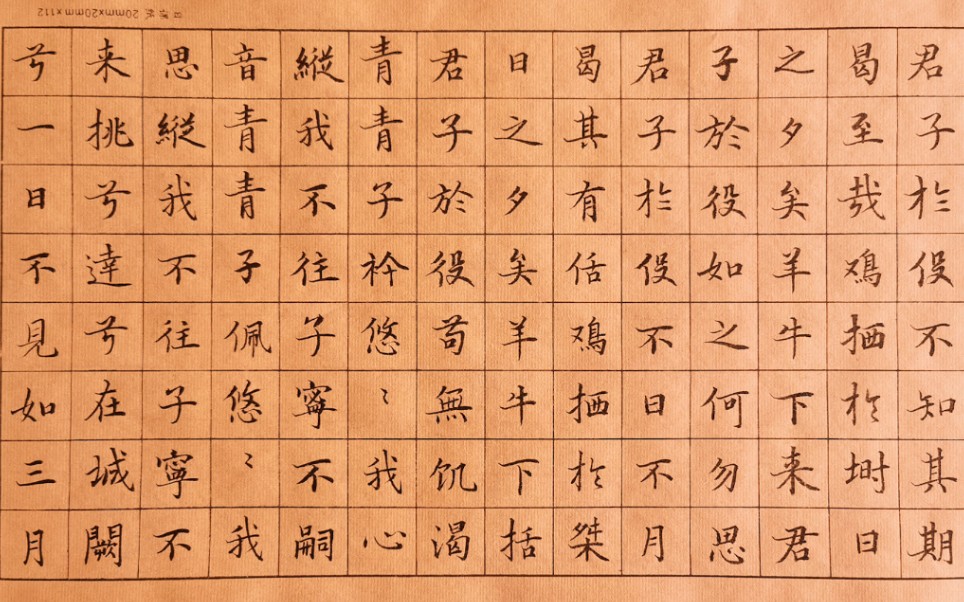 20mmx20mmx112
君子於役不知其期
曷至哉鳮栖於埘日
之夕矣羊牛下来君
子於役如之何勿思
君子於役不日不月
曷其有佸鳮栖於桀
日之夕矣羊牛下括
君子於役苟無饥渴
青青子衿悠〻我心
縱我不往子寧不嗣
音青青子佩悠〻我
思縱我不往子寧不
来挑兮達兮在城闕
兮一日不見如三月